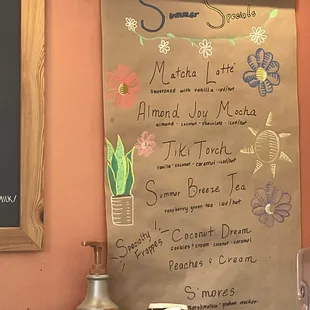 Summer Specials
Matcha Latté
Sweetened with vanilla · iced/hot
Almond Joy Mocha
almond · coconut · chocolate · iced/hot
Tiki Torch
vanilla · coconut · caramel · iced/hot
Summer Breeze Tea
raspberry green tea · iced/hot
Specialty
Frappes
Coconut Dream
cookies + cream · coconut · caramel
Peaches & Cream
S'mores
marshmallow · graham cracker
MILK/